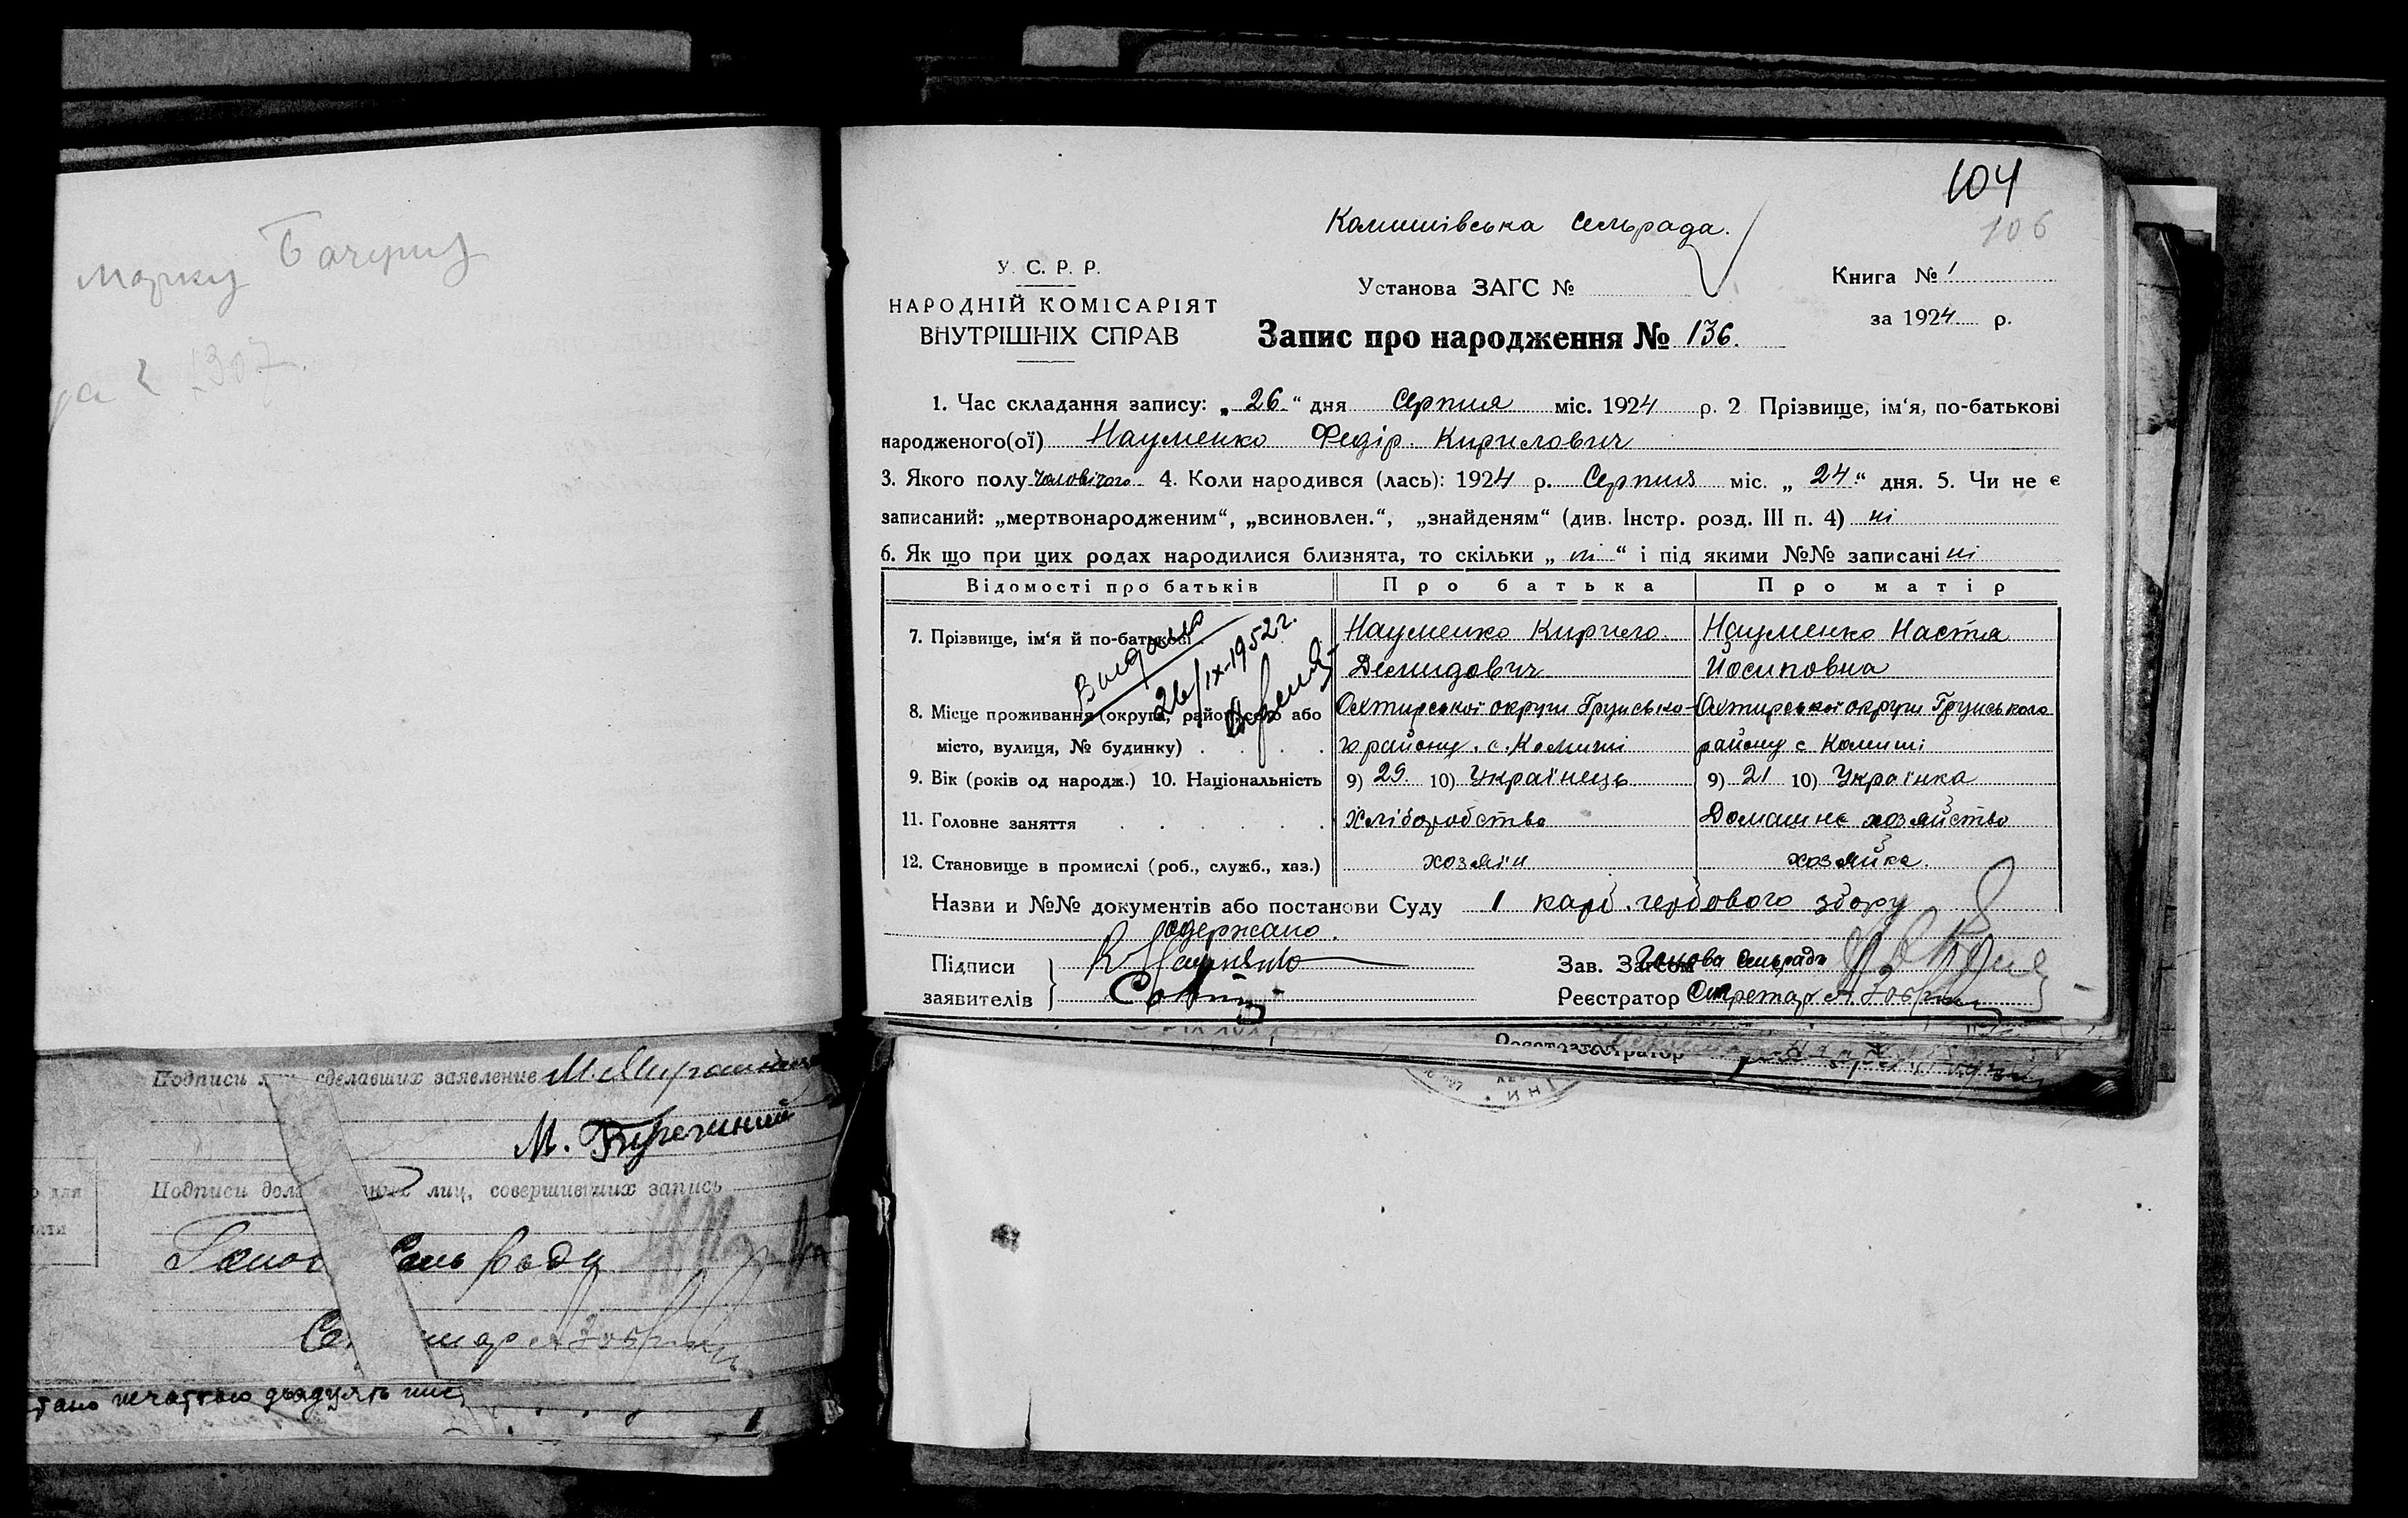 Марку
104
106
Комишівська Сельрада.
У. С. Р. Р.
НАРОДНІЙ КОМІСАРІЯТ
ВНУТРІШНІХ СПРАВ
Установа ЗАГС №
Книга № 1
за 1924 р.
Запис про народження № 136.
1. Час складання запису: „ 26 “ дня Серпня міс. 1924 р. 2 Прізвище, ім‘я, по-батькові
народженого(ої) Науменко Федір Кирилович
3. Якого полу чоловічого 4. Коли народився (лась): 1924 р. Серпня міс. „ 24 “ дня. 5. Чи не є
записаний: „мертвонародженим“, „всиновлен.“, „знайденям“ (див. Інстр. розд. III п. 4) ні
6. Як що при цих родах народилися близнята, то скільки „ ні “ і під якими №№ записані ні
Відомості про батьків Про батька Про матір
7. Прізвище, ім‘я й по-батькові Науменко Кирило Науменко Настя
Демидович Йосиповна
Выдано
26/IX-1952г.
8. Місце проживання (округа, район, село або Охтирської округи Грунсько- Охтирської округи Грунського
місто, вулиця, № будинку) го району. с. Комиші району с Комиші
9. Вік (років од народж.) 10. Національність 9) 29 10) Українець 9) 21 10) Українка
11. Головне заняття Хліборобство Домашнє хозяйство
12. Становище в промислі (роб., служб., хаз.) хозяїн хозяйка.
Назви и №№ документів або постанови Суду 1 карб. гербового збору
одержано.
Підписи К Науменко Зав. Загсом Голова Сельради
заявителів Реєстратор Секретар
Реєстратор
Подписи лиц сделавших заявление М. Мирошниче
М.
Подписи долж ных лиц, совершивших запись
Голов Сель ради
Се тар
печаткою двадцять